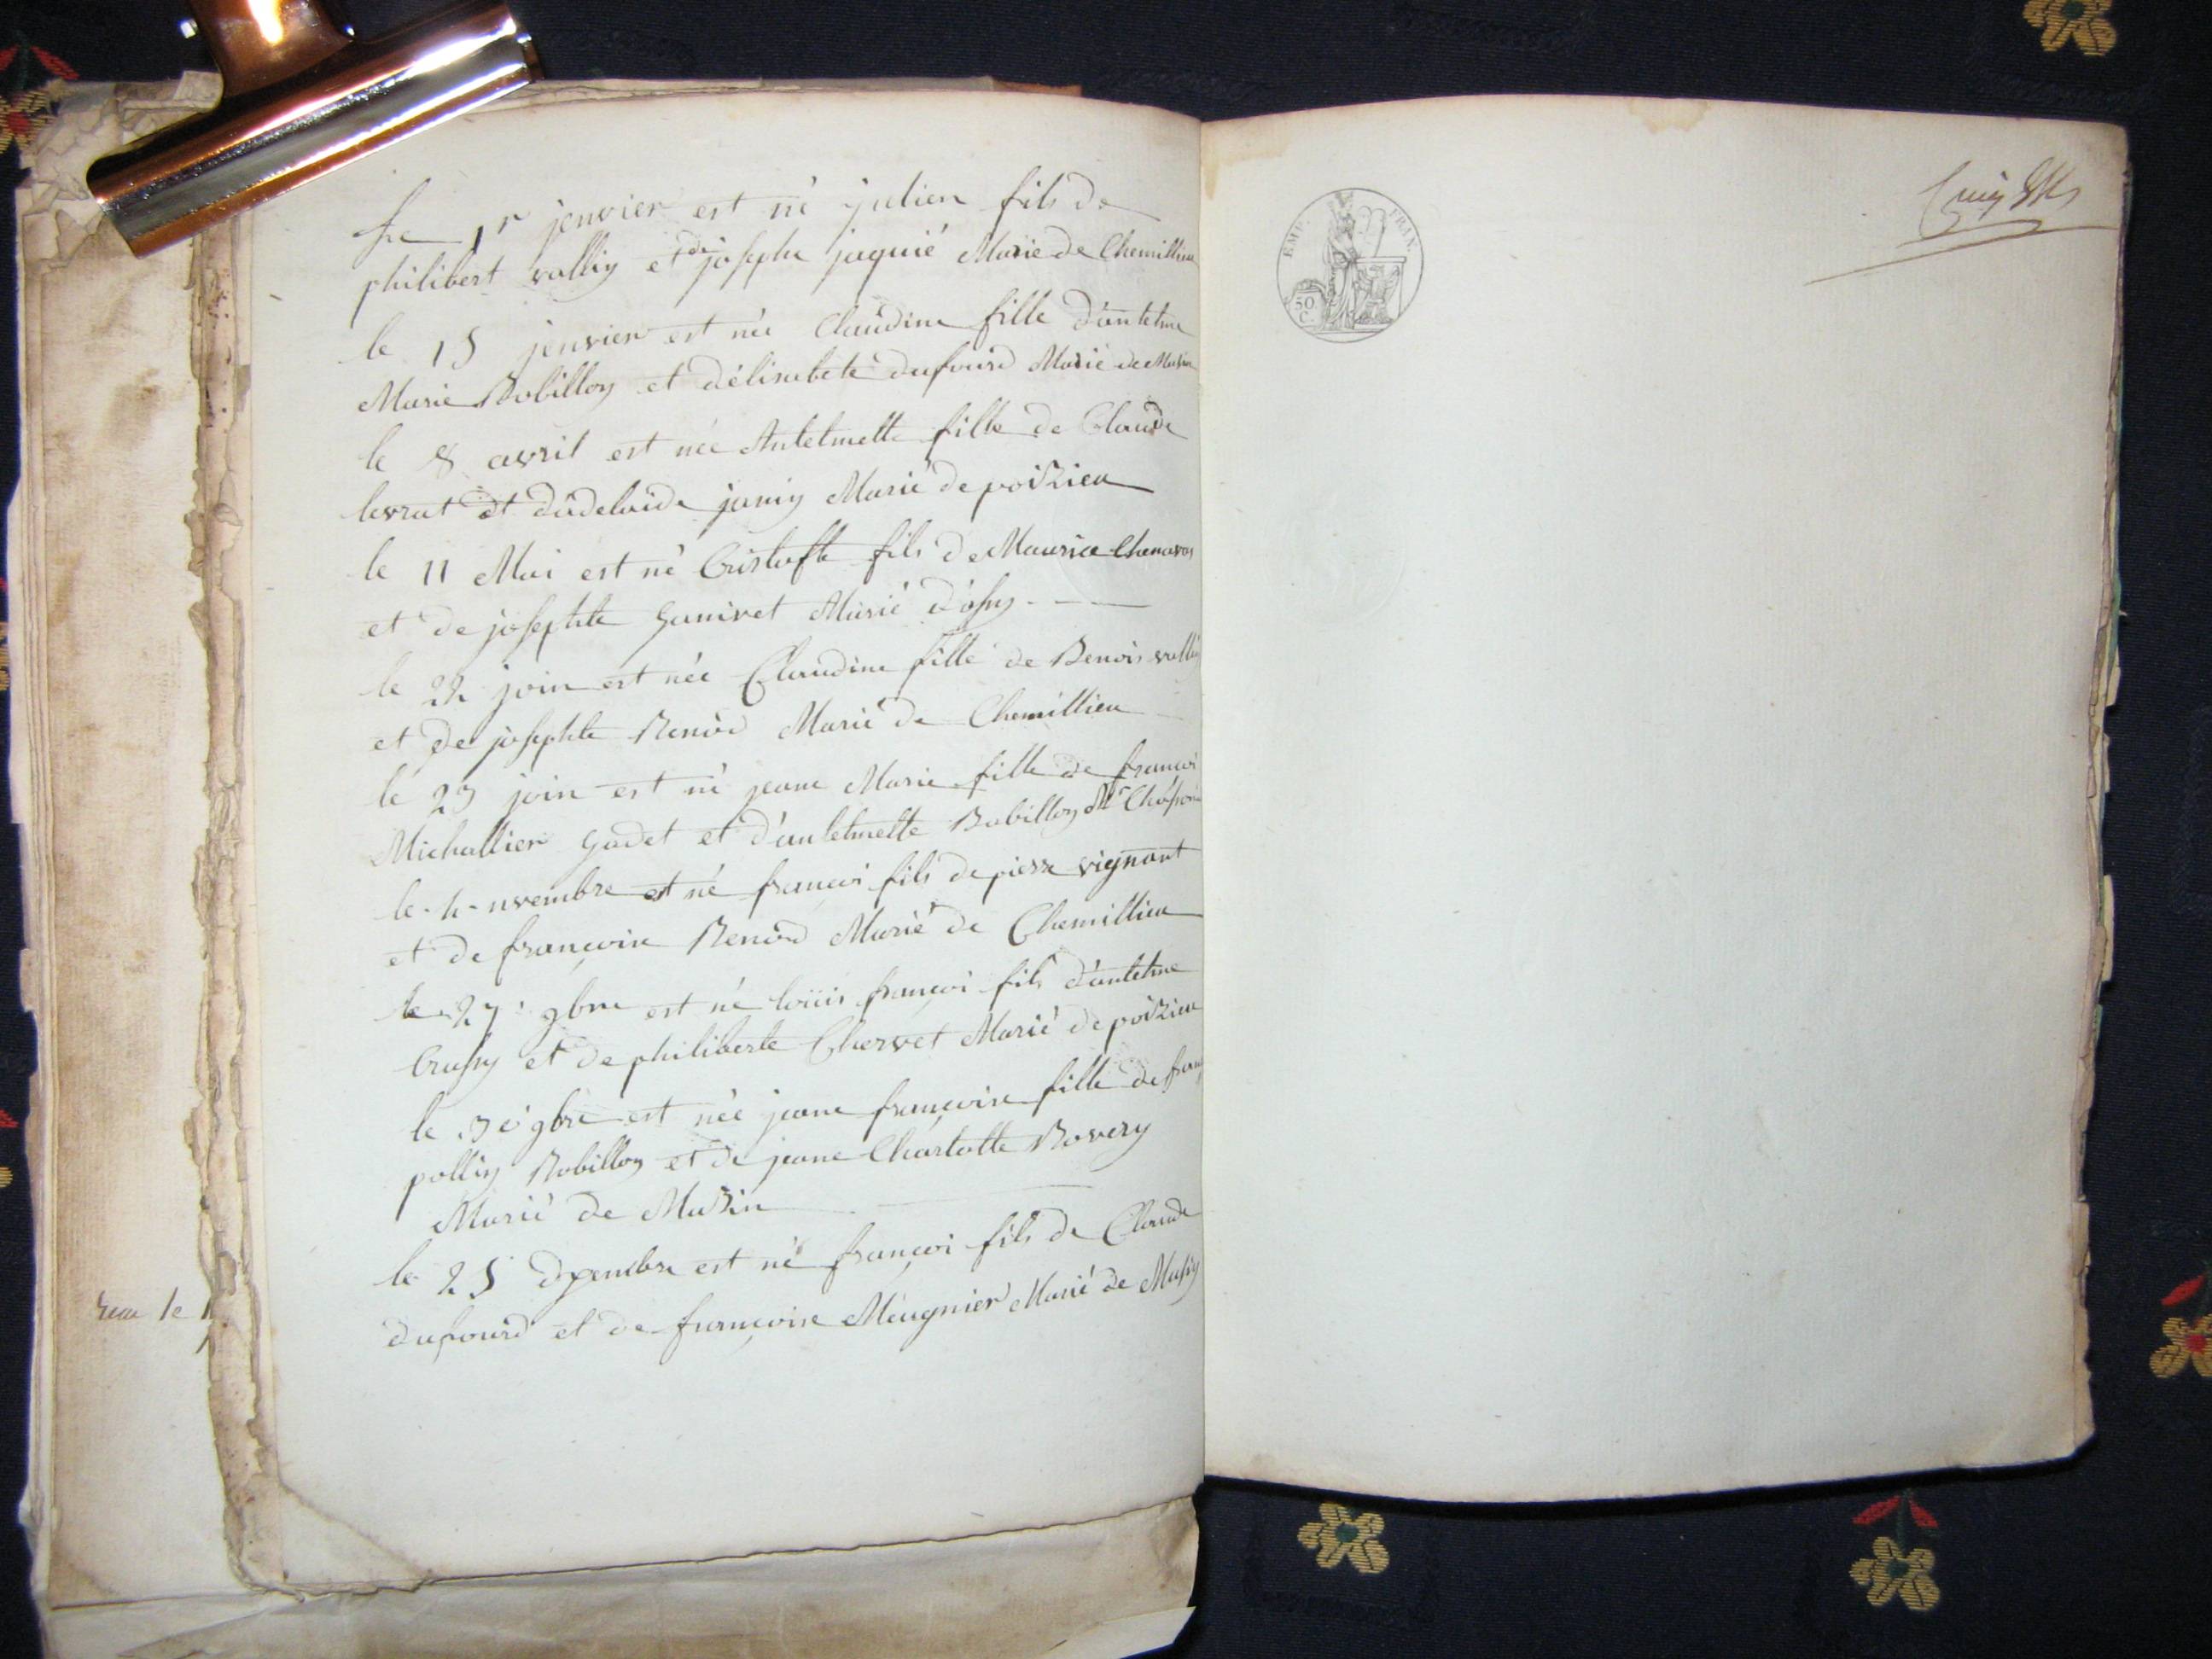 Le 1r jenvier est né julien fils de
philibert vallin et de josephe jaquié Marié de Chemillieu
le 15 jenvier est née Claudine fille d'antelme
Marie Bobillon et d'élisabete dufourd Marié de
le 8 avril est née Antelmette fille de Claude
levrat et d'adelaide janin Marié de poizieu
le 11 Mai est né Cristofle fils de Maurice
et de josephte Ganivet Marié
le 22 join est née Claudine fille de Benois vallin
et de josephte Renôd Marié de Chemillieu
le 23 join est né jeane Marie fille de françoi
Michallier Gadet et d'antelmette Bobillon
le 4 nvembre est né françoi fils de piere vignant
et de françoise Renôd Marié de Chemillieu
le 27 9bre est né loüis françoi fils d'antelme
et de philiberte Chervet Marié de poizieu
le 30 9bre est née jeane françoise fille de
pollin Bobillon et de jeane Charlotte Bovery
Marié de Mazin
le 25 est né françoi fils de Claude
dufourd et de furnçoise Meugnier Marié de
EMP. FRAN.
50
C.
le